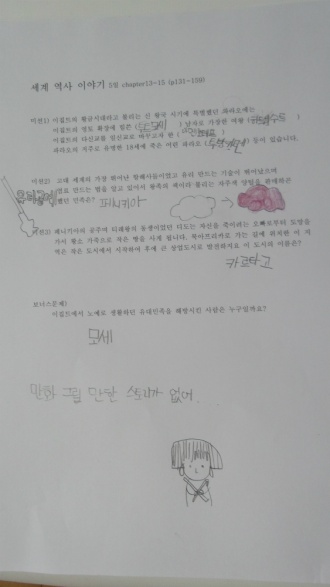 세계 역사 이야기 5일 chapter13~15 (p131~159)
미션1) 이집트의 황금시대라고 불리는 신 왕국 시기에 특별했던 파라오에는
이집트의 영토 확장에 힘쓴 ( ) 남자로 가장한 여왕 ( )
이집트의 다신교를 일신교로 바꾸고자 한 ( )
파라오의 저주로 유명한 18세에 죽은 어린 파라오 ( ) 등이 있습니다.
미션2) 고대 세계의 가장 뛰어난 항해자들이었고 유리 만드는 기술이 뛰어났으며
염료 만드는 법을 알고 있어서 왕족의 색이라 불리는 자주색 염료를
했던 민족은? 페니키아
미션3) 페니키아의 공주며 디레왕의 동생이었던 디도는 자신을 죽이려는 오빠로부터 도망을
가서 황소 가죽으로 작은 땅을 사게 됩니다. 북아프리카로 가는 길에 위치한 이
작은 도시에서 시작하여 후에 큰 상업도시로 발전하지요 이 도시의 이름은?
카르타고
보너스문제)
이집트에서 노예로 생활하던 유대민족을 해방시킨 사람은 누구일까요?
모세
만화 그릴 만한 스토리가 없어..